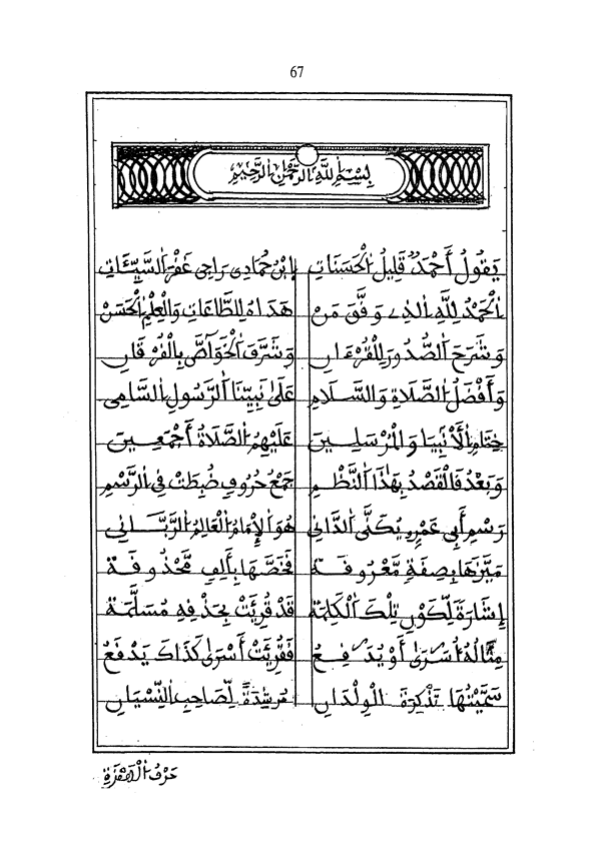 67
بِسْمِ اللَّهِ الرَّحْمَٰنِ الرَّحِيمِ
يَقُولُ أَحْمَدُ قَلِيلُ الْحَسَنَاتِ إِبْنُ حُمَادِى رَاجِى غَفْرَ السَّيِّئَاتِ
اَلْحَمْدُ لِلَّهِ الذِي وَفَّقَ مَنْ هَدَاهُ لِلطَّاعَاتِ وَالْعِلْمِ الْحَسَنْ
وَشَرَحَ الصُّدُورَ لِلْقُرْءَانِ وَشَرَّفَ الْخَوَاصَّ بِالْفُرْقَانِ
وَأَفْضَلُ الصَّلَاةِ وَالسَّلَامِ عَلَىٰ نَبِيِّنَا الرَّسُولِ السَّامِى
خِتَامِ الْأَنْبِيَا وَالْمُرْسَلِينَ عَلَيْهِمُ الصَّلَاةُ أَجْمَعِينَ
وَبَعْدُ فَالْقَصْدُ بِهَٰذَا النَّظْمِ جَمْعُ حُرُوفٍ ضُبِطَتْ فِي الرَّسْمِ
رَسْمِ أَبِي عَمْرٍو يُكَنَّى الدَّانِي هُوَ الْإِمَامُ الْعَالِمُ الرَّبَّانِي
مَيَّزَهَا بِصِفَةٍ مَّعْرُوفَةْ فَخَصَّهَا بِأَلِفٍ مَّحْذُوفَةْ
إِشَارَةً لِّكَوْنِ تِلْكَ الْكَلِمَةْ قَدْ قُرِيَتْ بِحَذْفِهِ مُسَلَّمَةْ
مِثَالُهُ أُسَٰرَىٰ أَوْ يُدَٰفِعُ فَقُرِيَتْ أَسْرَىٰ كَذَاكَ يَدْفَعُ
سَمَّيْتُهَا تَذْكِرَةَ الْوِلْدَانِ مُرْشِدَةً لِّصَاحِبِ النِّسْيَانِ
حَرْفُ الْهَمْزَةِ